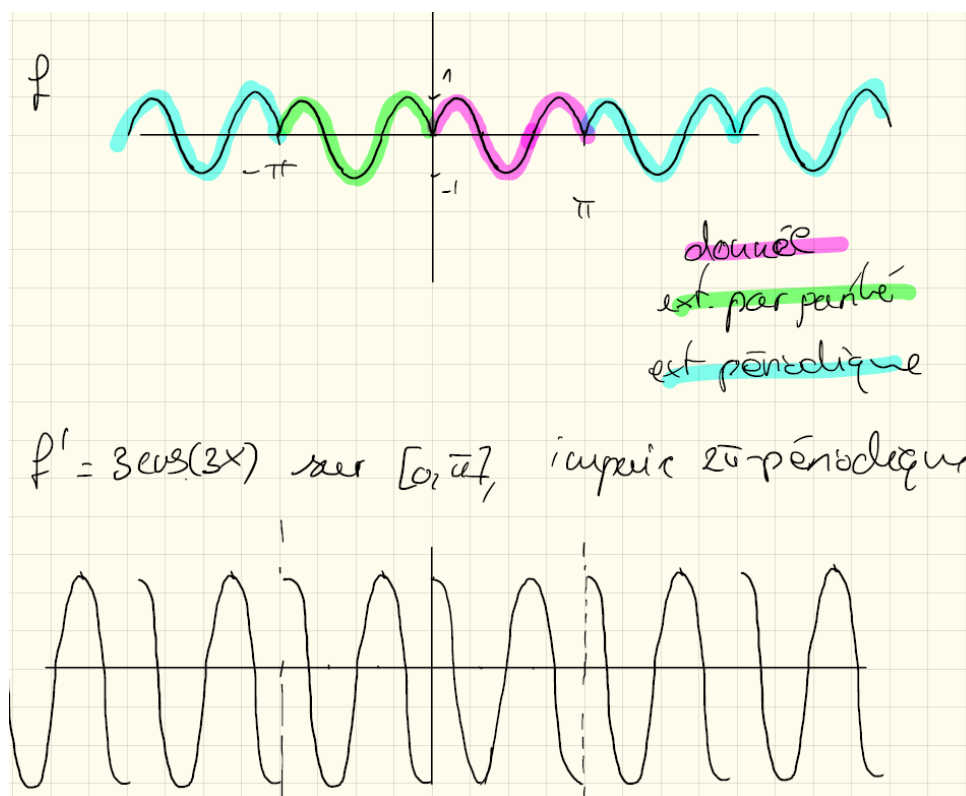 f
1
-π
-1
π
donnée
ext. par parité
ext périodique
f' = 3cos(3x) sur [0, π], impaire 2π-périodique